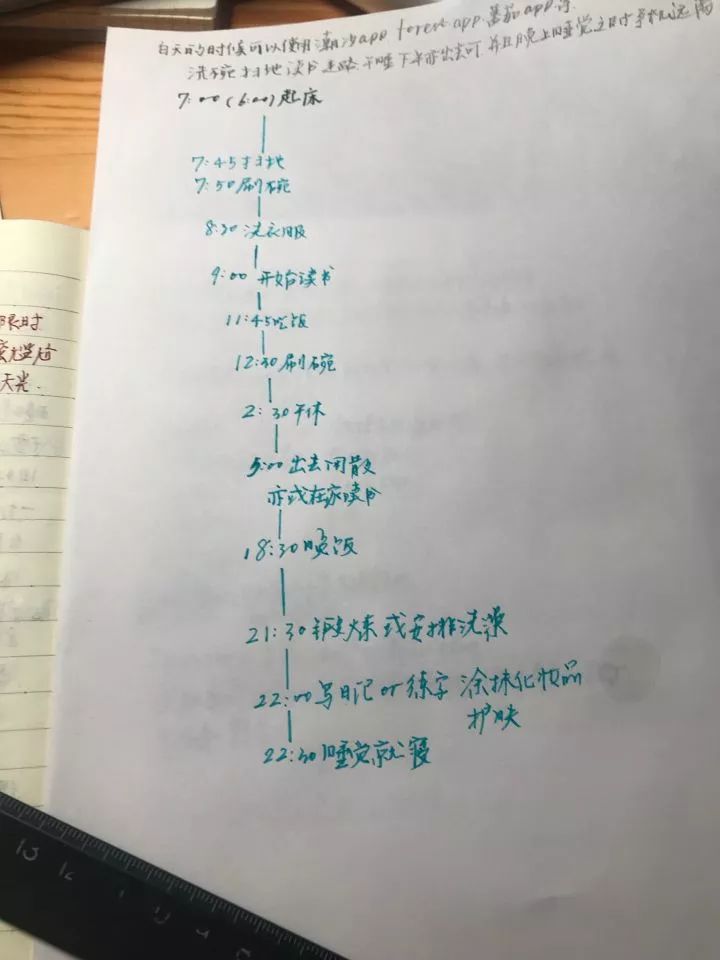 白天的时候可以使用潮汐app forest app 番茄app等
洗碗 扫地 读书 走路 午睡 下午亦出去可 并且晚上睡觉之时手机远离
7:00(6:00)起床
7:45扫地
7:50刷碗
8:30 洗衣服
9:00 开始读书
11:45吃饭
12:30 刷碗
2:30 午休
5:00 出去闲散
亦或在家读书
18:30 晚饭
21:30 锻炼 或安排洗澡
22:00 写日记 or 练字 涂抹化妆品
护肤
22:30 睡觉就寝
限时
天光.